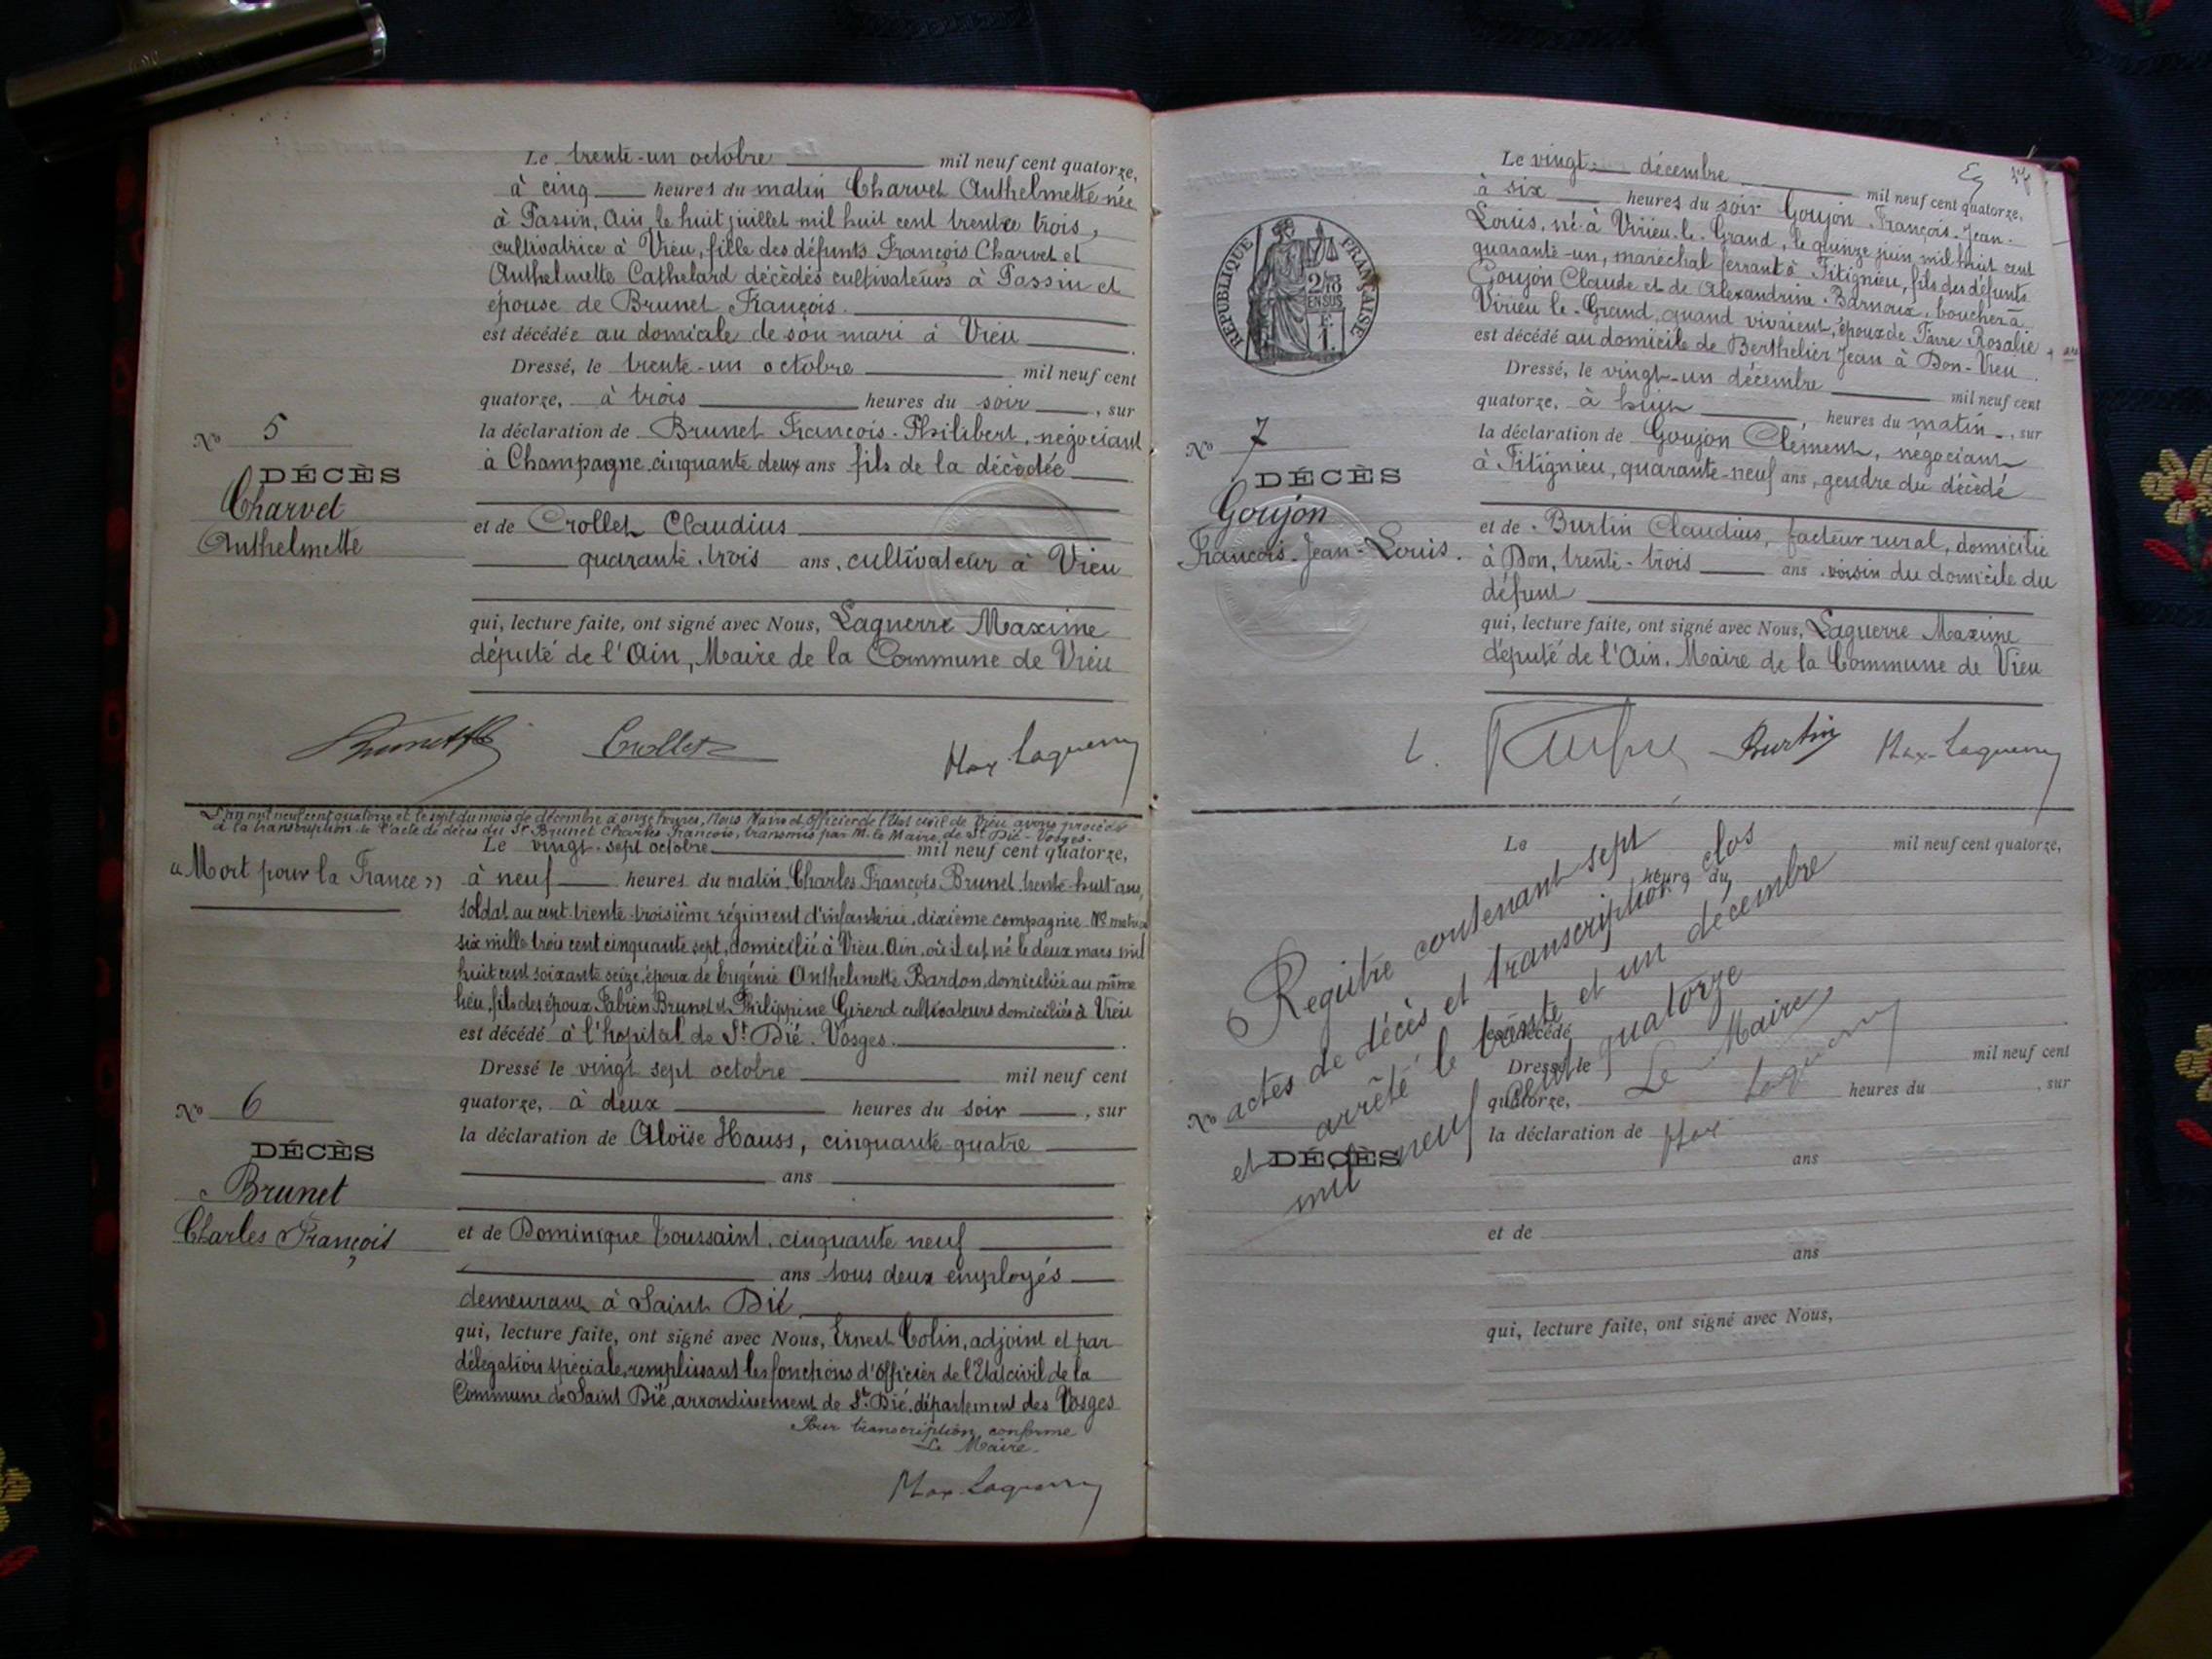 Le trente-un octobre mil neuf cent quatorze,
à cinq heures du matin Charvet Anthelmette née
à Passin, Ain, le huit juillet mil huit cent trente trois,
cultivatrice à Vieu, fille des défunts François Charvet et
Anthelmette Cathelard décédés cultivateurs à Passin et
épouse de Brunet François.
est décédée au domicile de son mari à Vieu
Dressé, le trente-un octobre mil neuf cent
quatorze, à trois heures du soir, sur
No 5
la déclaration de Brunet François-Philibert, négociant
à Champagne, cinquante deux ans fils de la décédée
DÉCÈS
Charvet
Anthelmette
et de Crollet Claudius
quarante-trois ans, cultivateur à Vieu
qui, lecture faite, ont signé avec Nous, Laguerre Maxime
député de l'Ain, Maire de la Commune de Vieu
Crollet
Max Laguerre
L'an mil neuf cent quatorze et le sept du mois de décembre à onze heures, Nous Maire et officier de l'Etat civil de Vieu avons procédé
à la transcription de l'acte de décès du Sr Brunet Charles François, transmis par M. le Maire de St Dié - Vosges.
Le vingt-sept octobre mil neuf cent quatorze,
« Mort pour la France »
à neuf heures du matin, Charles François Brunet, trente-huit ans,
soldat au cent-trente-troisième régiment d'infanterie, dixième compagnie No
six mille trois cent cinquante sept, domicilié à Vieu, Ain, où il est né le deux mars mil
huit cent soixante seize, époux de Eugénie Anthelmette Bardon, domiciliée au même
lieu, fils des époux Fabien Brunet et Philippine Girerd cultivateurs domiciliés à Vieu
est décédé à l'hopital de St Dié. Vosges.
Dressé le vingt sept octobre mil neuf cent
quatorze, à deux heures du soir, sur
No 6
la déclaration de Aloïse Hauss, cinquante-quatre
ans
DÉCÈS
Brunet
Charles François
et de Dominique Toussaint, cinquante neuf
ans tous deux employés
demeurant à Saint Dié
qui, lecture faite, ont signé avec Nous, Ernest Colin, adjoint et par
délégation spéciale, remplissant les fonctions d'officier de l'Etat civil de la
Commune de Saint Dié, arrondissement de St Dié, département des Vosges
Pour transcription conforme
Le Maire.
Max Laguerre
Le vingt décembre mil neuf cent quatorze,
à six heures du soir Goujon François-Jean-
Louis, né à Virieu-le-Grand, le quinze juin mil huit cent
quarante-un, maréchal ferrant à Fitignieu, fils des défunts
Goujon Claude et de Alexandrine Barnoux, boucher à
Virieu le-Grand, quand vivaient, époux de Favre Rosalie
est décédé au domicile de Berthelier Jean à Don-Vieu
RÉPUBLIQUE FRANÇAISE
2/10
EN SUS
Dressé, le vingt-un décembre mil neuf cent
quatorze, à huit heures du matin, sur
No 7
la déclaration de Goujon Clément, négociant
à Fitignieu, quarante-neuf ans, gendre du décédé
DÉCÈS
Goujon
François-Jean-Louis.
et de Burtin Claudius, facteur rural, domicilié
à Don, trente-trois ans, voisin du domicile du
défunt
qui, lecture faite, ont signé avec Nous, Laguerre Maxime
député de l'Ain. Maire de la Commune de Vieu
Burtin
Max Laguerre
Le mil neuf cent quatorze,
heures du
Registre contenant sept
actes de décès et transcription, clos
et arrêté le trente et un décembre
mil neuf cent quatorze
Le Maire,
Max Laguerre
est décédé
Dressé, le mil neuf cent
quatorze, heures du, sur
No
la déclaration de
ans
DÉCÈS
et de
ans
qui, lecture faite, ont signé avec Nous,